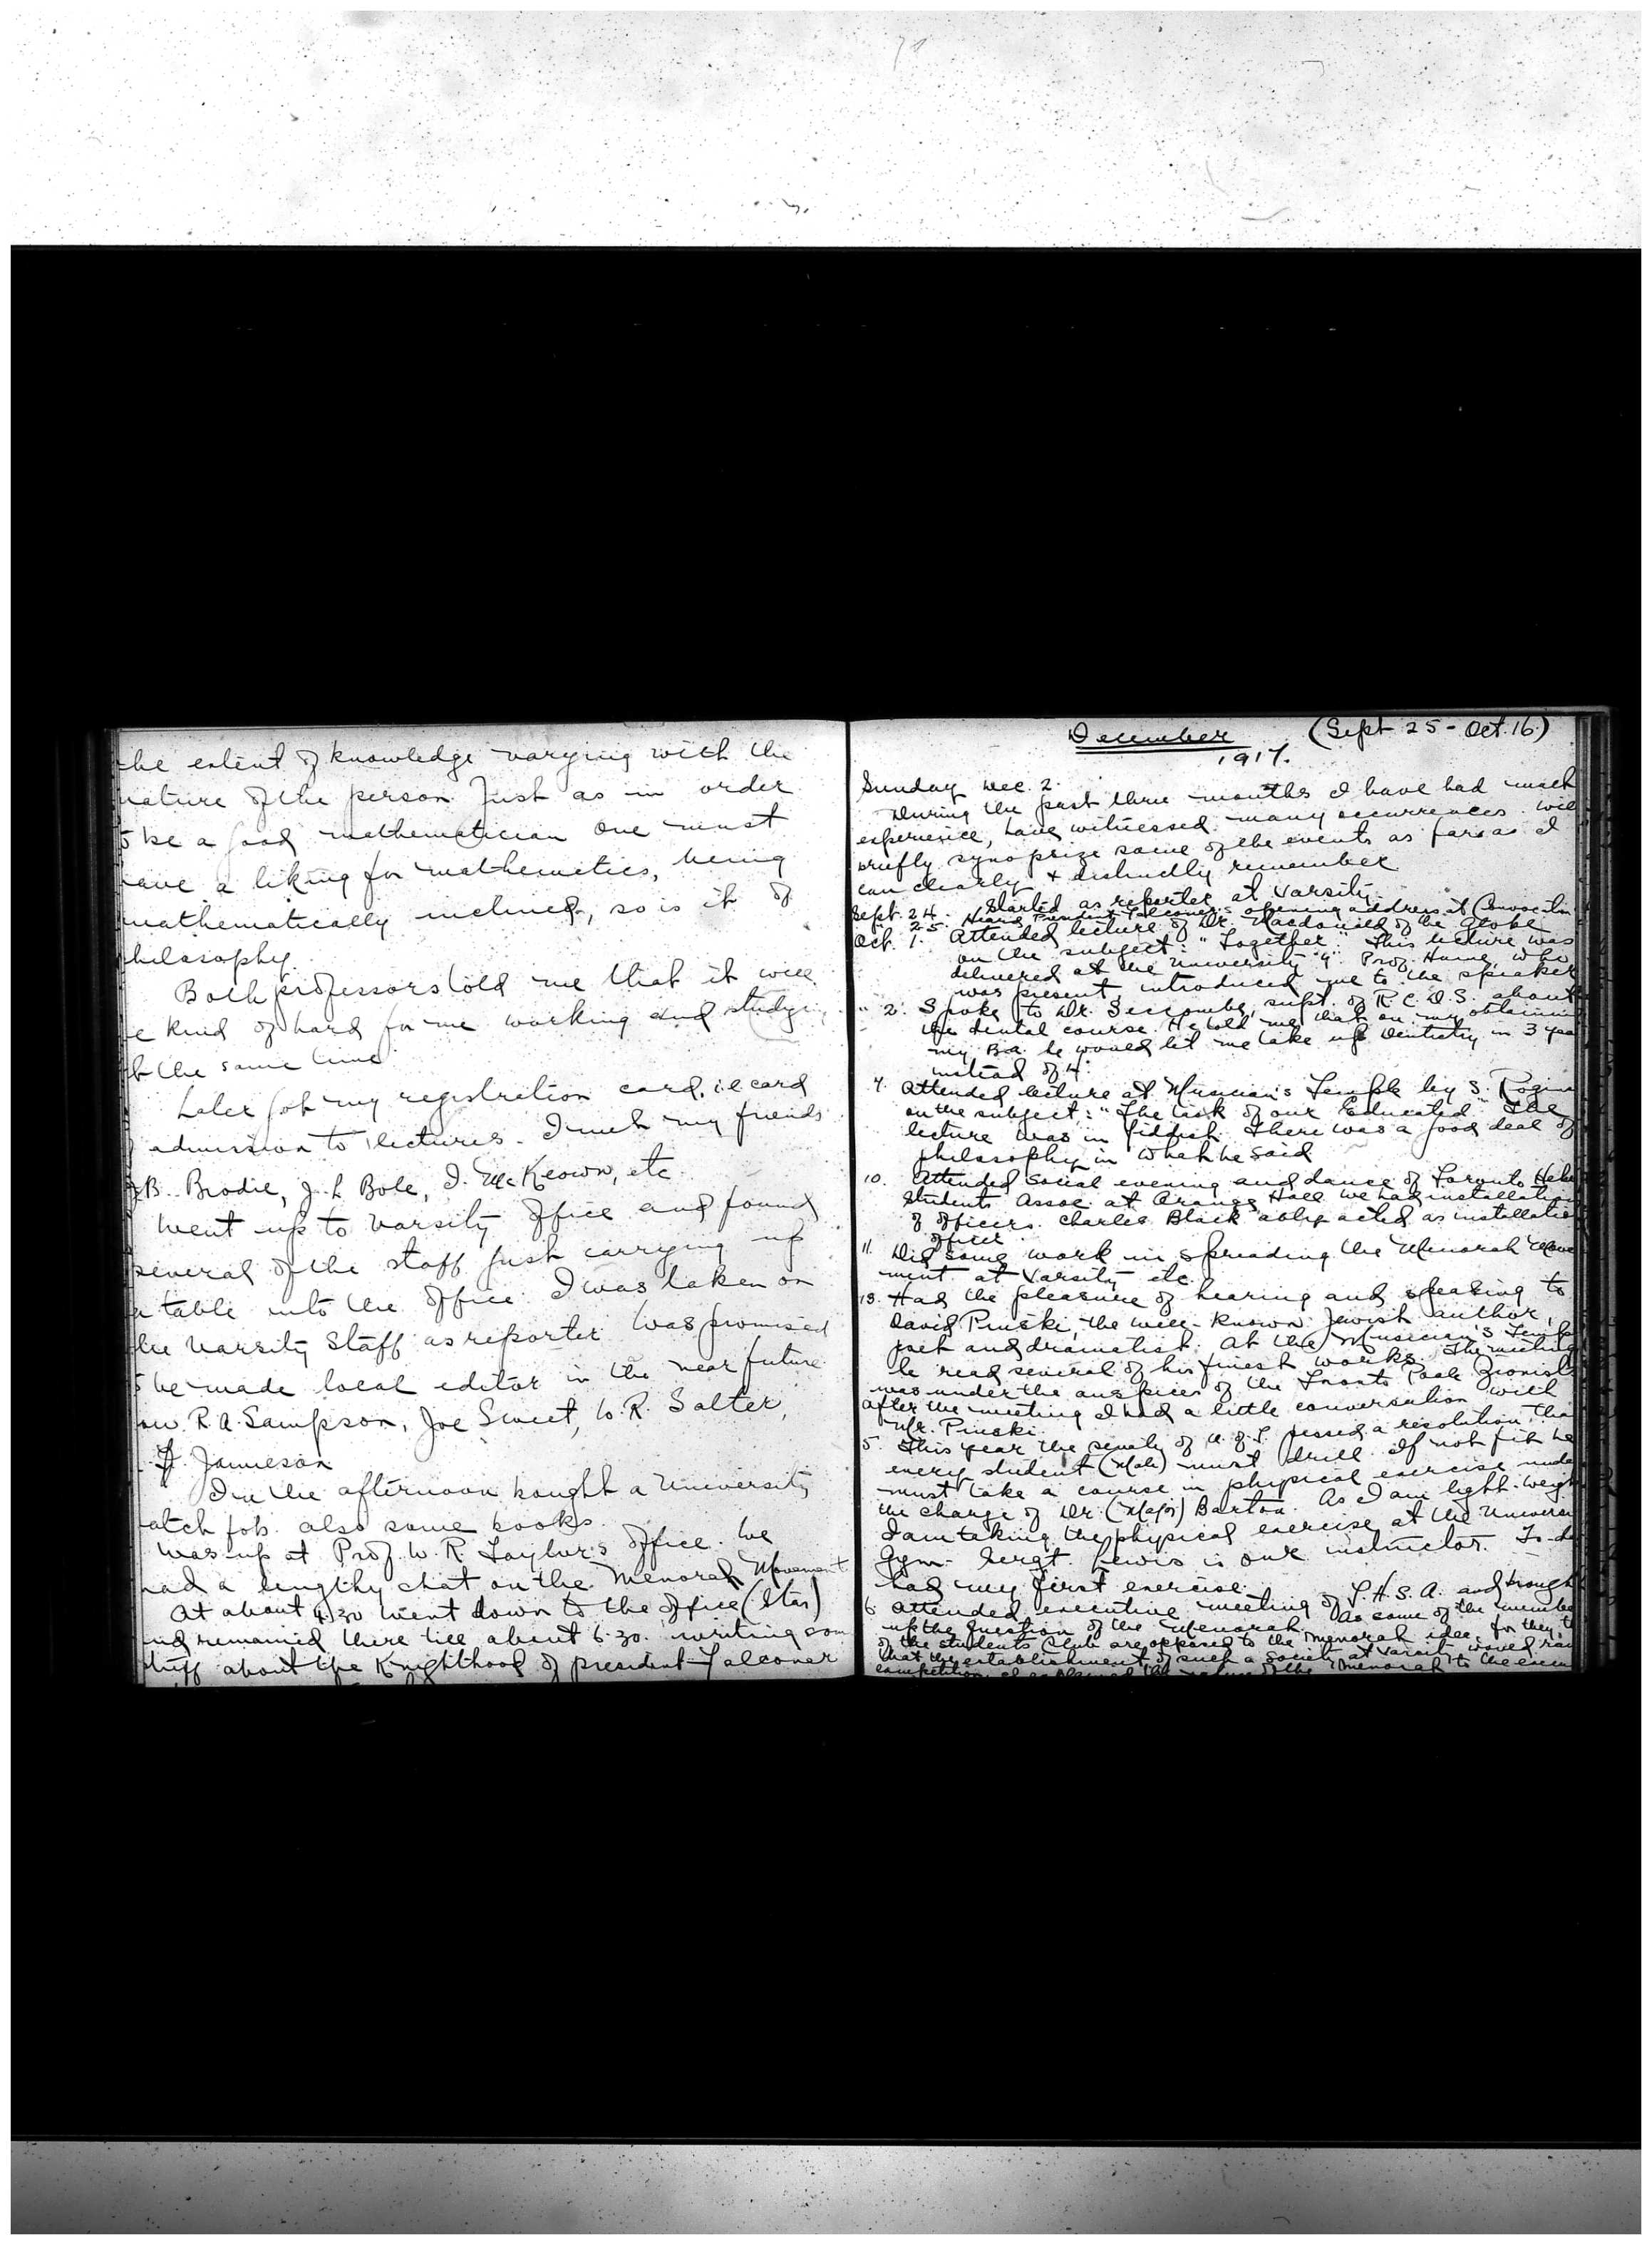 the extent of knowledge varying with the
nature of the person. Just as in order
to be a good mathematician one must
have a liking for mathematics, being
mathematically inclined, so is it of
philosophy.
Both professors told me that it will
be kind of hard for me working and studying
at the same time.
Later got my registration card, i.e card
of admission to lectures. I met my friends
B. Brodie, J. L Bole, I. McKeown, etc.
Went up to Varsity office and found
several of the staff just carrying up
a table into the office. I was taken on
the Varsity Staff as reporter. Was promised
to be made local editor in the near future
R. A. Sampson, Joe Sweet, W. R. Salter,
F. Jamieson
In the afternoon bought a University
watch fob. also some books.
Was up at Prof. W. R. Taylor's office. We
had a lengthy chat on the Menorah Movement
At about 4.30 went down to the office (Star)
and remained there till about 6.30. writing som
stuff about the Knighthood of president Falconer
December (Sept 25 - Oct. 16)
1917.
Sunday Dec. 2.
During the past three months I have had much
experience, have witnessed many occurrences. Will
briefly synoprize some of the events as far as I
can clearly & distinctly remember
Sept. 24. Started as reporter at Varsity.
25. Heard President Falconer's opening address at Convocation
Oct. 1. Attended lecture of Dr. Macdonald of the Globe
on the subject: "Together." This lecture was
delivered at the University Prof. Hume, who
was present introduced me to the speaker
" 2. Spoke to Dr. Seccombe, supt. of R.C.D.S. about
the dental course. He told me that on my obtaining
my B.A. he would let me take up Dentistry in 3 yea
instead of 4.
7. Attended lecture at Musician's Temple by S.
on the subject: "The task of our Educated." The
lecture was in Yiddish. There was a good deal of
philosophy in what he said
10. Attended Social evening and dance of Toronto Heb
Students Assoc. at Orange Hall We had installation
of officers. Charles Black ably acted as installatio
officer.
11. Did some work in spreading the Menorah Move
ment at Varsity etc.
13. Had the pleasure of hearing and speaking to
David Pinski, the well-known Jewish author,
poet and dramatist. At the Musician's Temple
he read several of his finest works. The meeting
was under the auspices of the Toronto Poale Zionists
After the meeting I had a little conversation with
Mr. Pinski.
5. This year the senate of U. of T. passed a resolution tha
every student (Male) must drill. If not fit he
must take a course in physical exercise unde
the charge of Dr. (Major) Barton. As I am light-weigh
I am taking the physical exercise at the Univers
Gym. Sergt. Lewis is our instructor. To-da
had my first exercise.
6. Attended executive meeting of T.H.S.A. and brough
up the question of the Menorah. As some of the membe
of the students Club are opposed to the Menorah idea, for they t
that the establishment of such a society at Varsity would
competition, I explained the nature of the Menorah to the